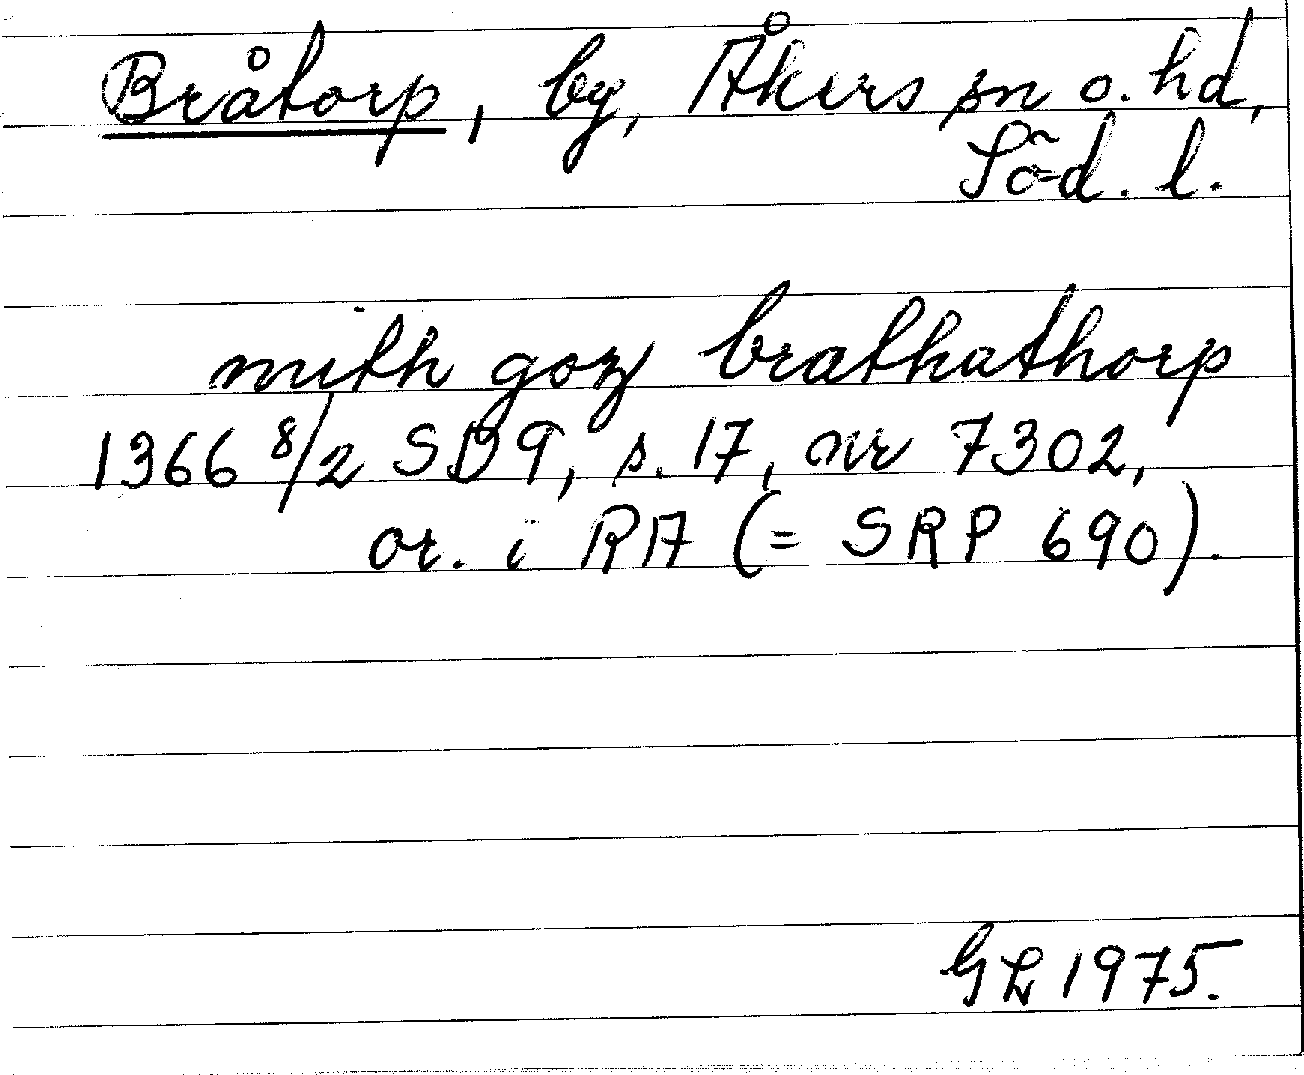 Bråtorp, by, Åkers sn o. hd,
Söd. l.
mith goz brathathorp
1366 8/2 SD 9, s. 17, nr 7302,
or. i RA (= SRP 690).
GL 1975.